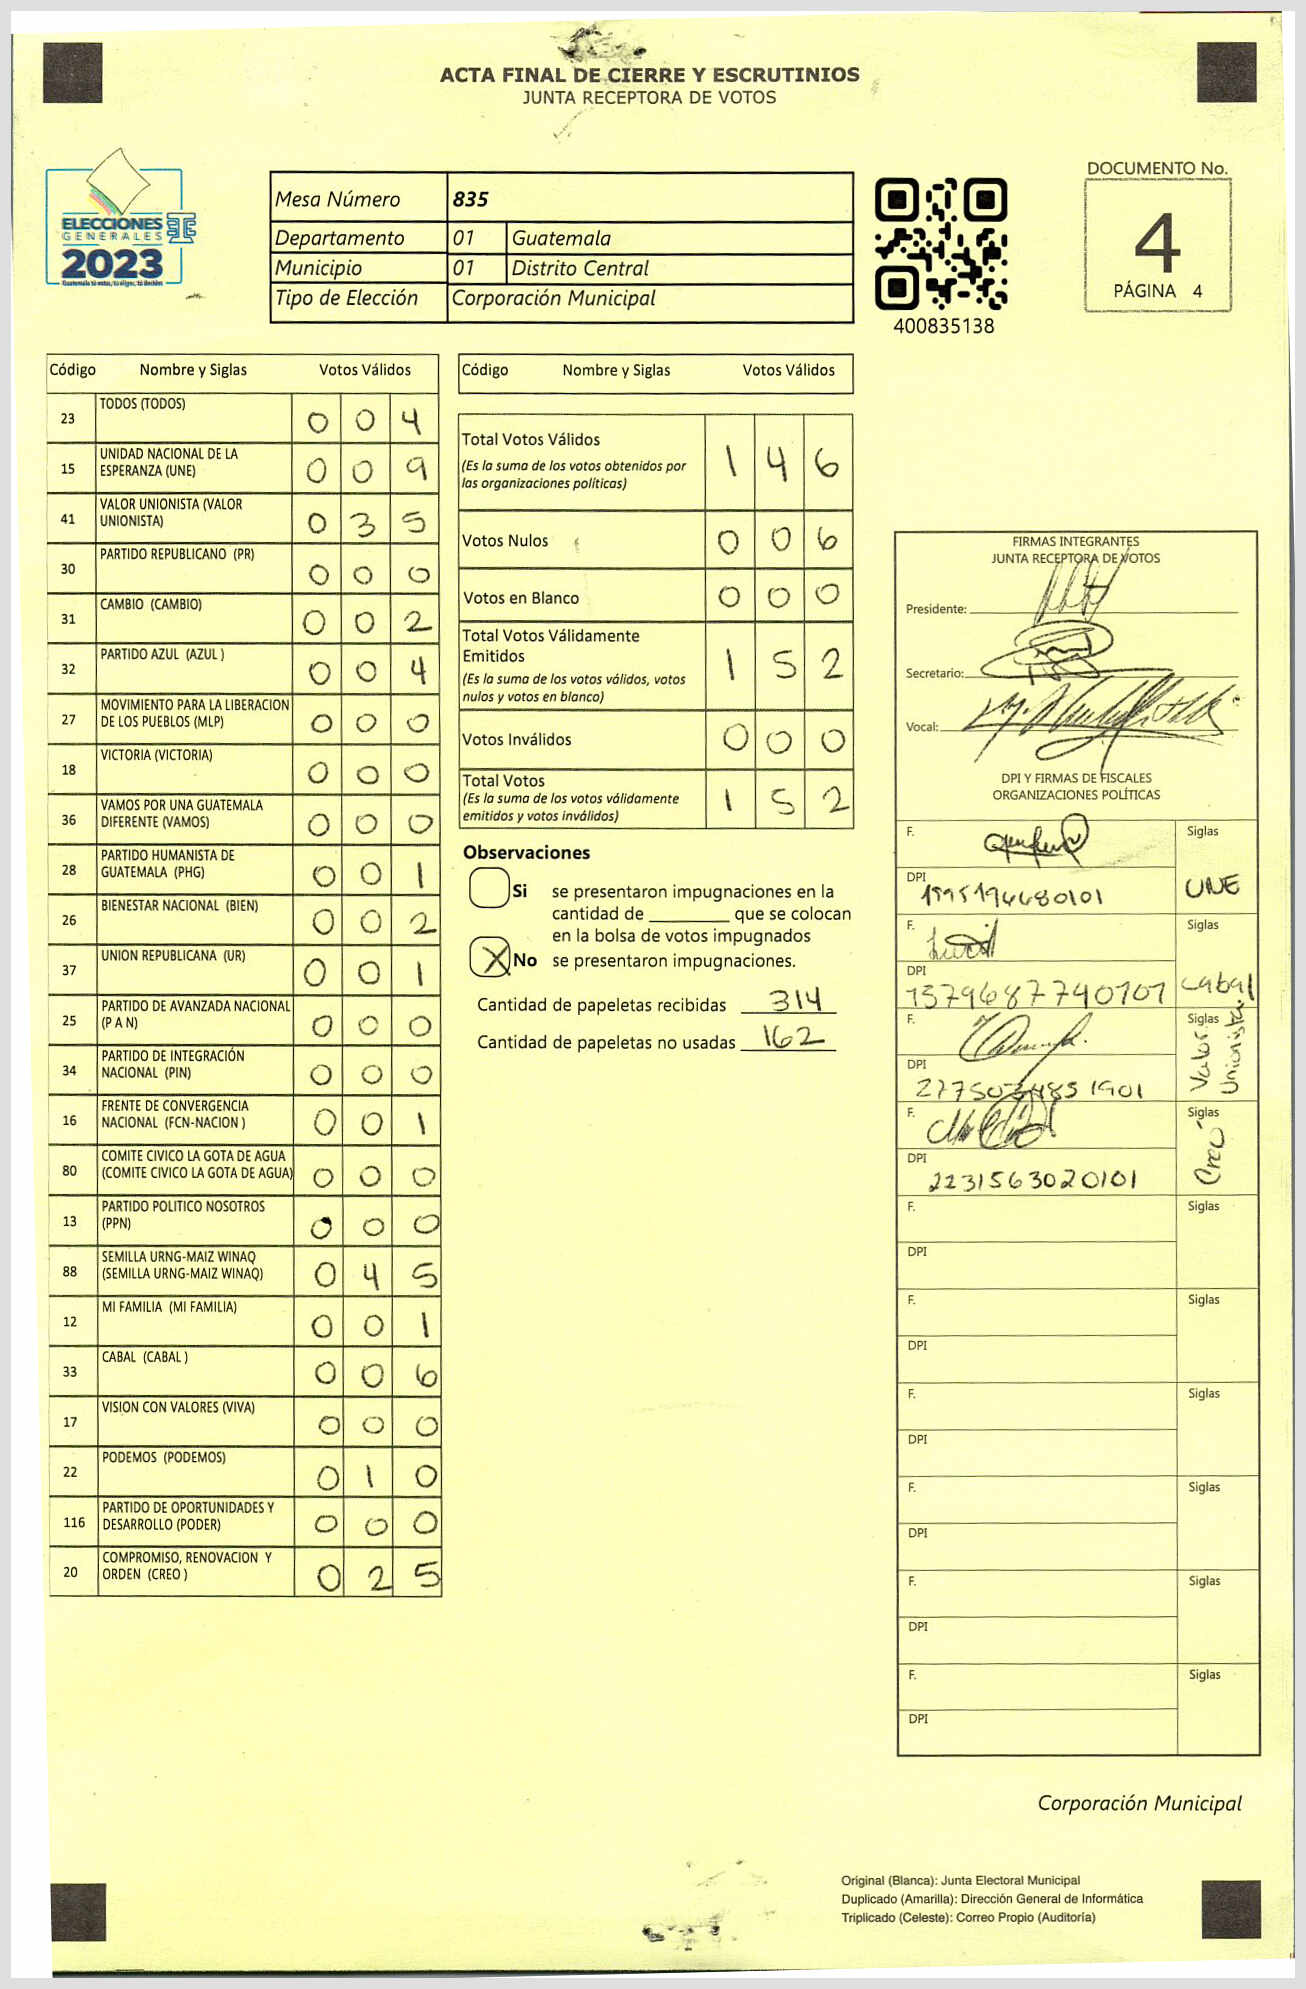 ACTA FINAL DE CIERRE Y ESCRUTINIOS
JUNTA RECEPTORA DE VOTOS
ELECCIONES
GENERALES
2023
Mesa Número 835
Departamento 01 Guatemala
Municipio 01 Distrito Central
Tipo de Elección Corporación Municipal
400835138
DOCUMENTO No.
4
PÁGINA 4
Código Nombre y Siglas Votos Válidos
23 TODOS (TODOS) 0 0 4
15 UNIDAD NACIONAL DE LA
ESPERANZA (UNE) 0 0 9
41 VALOR UNIONISTA (VALOR
UNIONISTA) 0 3 5
30 PARTIDO REPUBLICANO (PR) 0 0 0
31 CAMBIO (CAMBIO) 0 0 2
32 PARTIDO AZUL (AZUL ) 0 0 4
27 MOVIMIENTO PARA LA LIBERACION
DE LOS PUEBLOS (MLP) 0 0 0
18 VICTORIA (VICTORIA) 0 0 0
36 VAMOS POR UNA GUATEMALA
DIFERENTE (VAMOS) 0 0 0
28 PARTIDO HUMANISTA DE
GUATEMALA (PHG) 0 0 1
26 BIENESTAR NACIONAL (BIEN) 0 0 2
37 UNION REPUBLICANA (UR) 0 0 1
25 PARTIDO DE AVANZADA NACIONAL
(P A N) 0 0 0
34 PARTIDO DE INTEGRACIÓN
NACIONAL (PIN) 0 0 0
16 FRENTE DE CONVERGENCIA
NACIONAL (FCN-NACION ) 0 0 1
80 COMITE CIVICO LA GOTA DE AGUA
(COMITE CIVICO LA GOTA DE AGUA) 0 0 0
13 PARTIDO POLITICO NOSOTROS
(PPN) 0 0 0
88 SEMILLA URNG-MAIZ WINAQ
(SEMILLA URNG-MAIZ WINAQ) 0 4 5
12 MI FAMILIA (MI FAMILIA) 0 0 1
33 CABAL (CABAL ) 0 0 6
17 VISION CON VALORES (VIVA) 0 0 0
22 PODEMOS (PODEMOS) 0 1 0
116 PARTIDO DE OPORTUNIDADES Y
DESARROLLO (PODER) 0 0 0
20 COMPROMISO, RENOVACION Y
ORDEN (CREO ) 0 2 5
Código Nombre y Siglas Votos Válidos
Total Votos Válidos 1 4 6
(Es la suma de los votos obtenidos por
las organizaciones políticas)
Votos Nulos 0 0 6
Votos en Blanco 0 0 0
Total Votos Válidamente
Emitidos 1 5 2
(Es la suma de los votos válidos, votos
nulos y votos en blanco)
Votos Inválidos 0 0 0
Total Votos 1 5 2
(Es la suma de los votos válidamente
emitidos y votos inválidos)
Observaciones
Si se presentaron impugnaciones en la
cantidad de ________ que se colocan
en la bolsa de votos impugnados
X No se presentaron impugnaciones.
Cantidad de papeletas recibidas 314
Cantidad de papeletas no usadas 162
FIRMAS INTEGRANTES
JUNTA RECEPTORA DE VOTOS
Presidente:
Secretario:
Vocal:
DPI Y FIRMAS DE FISCALES
ORGANIZACIONES POLÍTICAS
F. Siglas
DPI UNE
1595194680101
F. Siglas
DPI Cabal
1379687740101
F. Siglas
DPI Valor Unionista
F. Siglas
DPI Creo
2231563020101
F. Siglas
DPI
F. Siglas
DPI
F. Siglas
DPI
F. Siglas
DPI
F. Siglas
DPI
F. Siglas
DPI
Corporación Municipal
Original (Blanca): Junta Electoral Municipal
Duplicado (Amarilla): Dirección General de Informática
Triplicado (Celeste): Correo Propio (Auditoría)